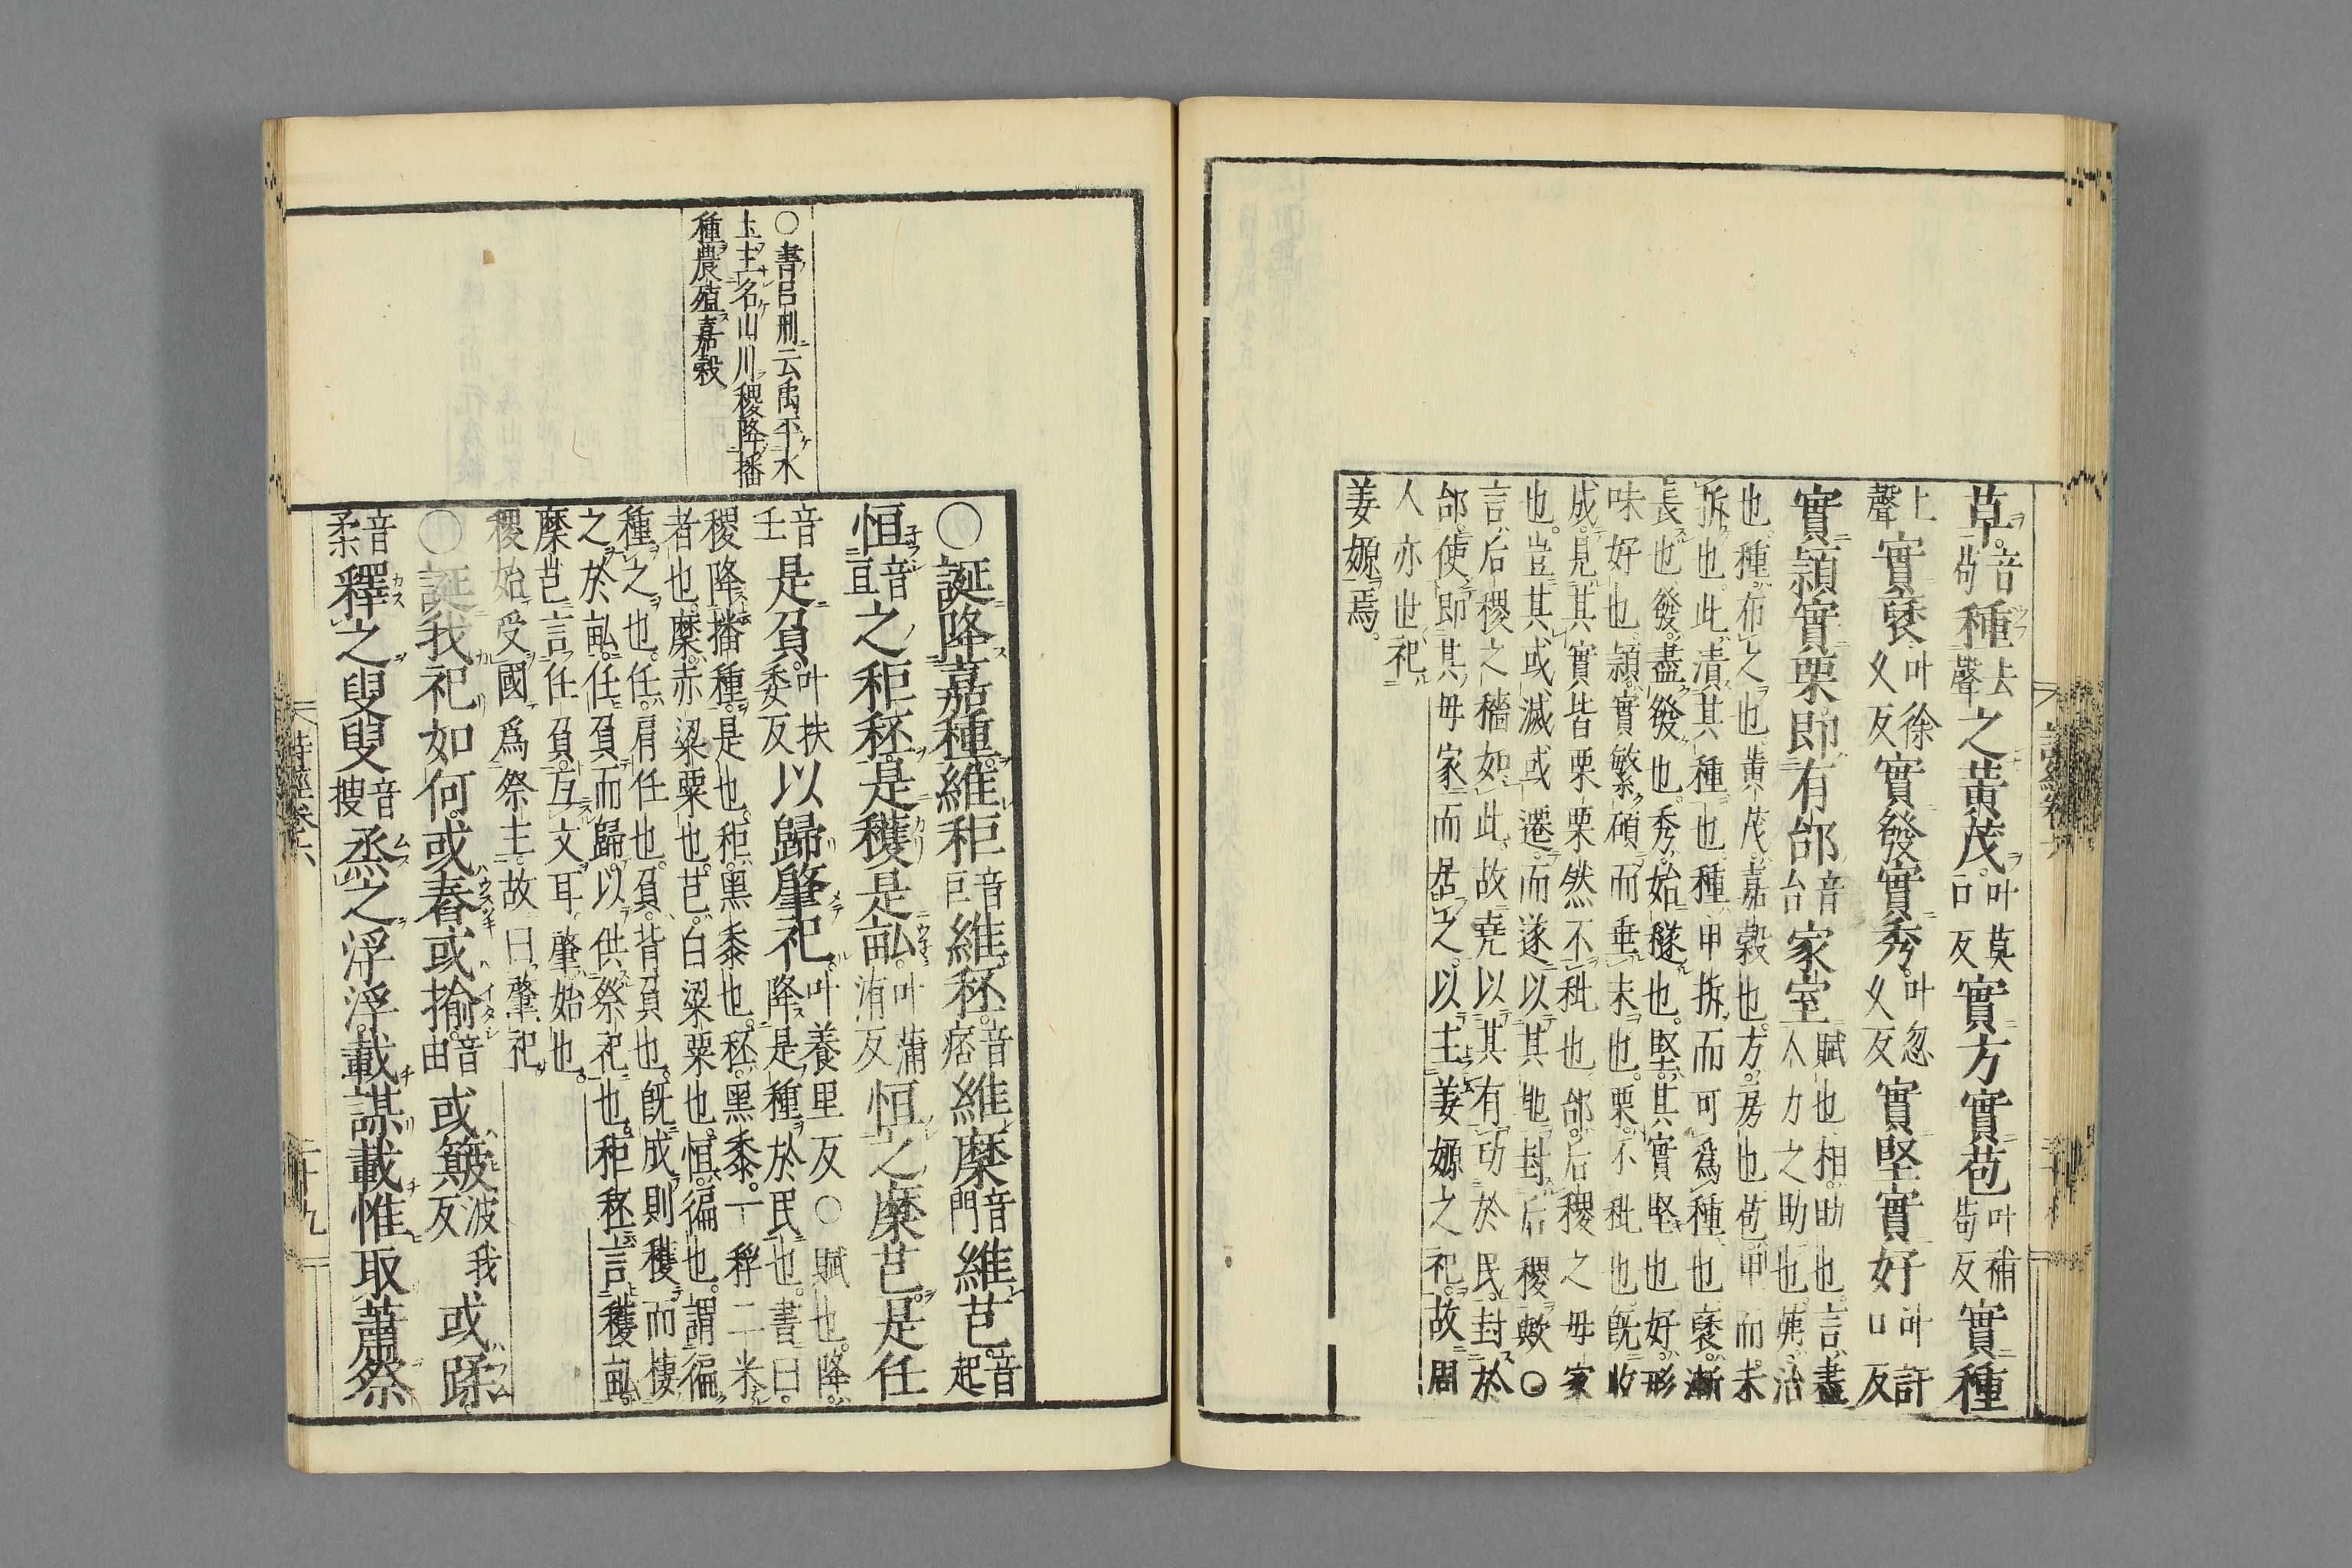 草音茍種去聲之黃茂叶莫口反實方實苞叶補茍反實種
上聲實褎叶徐乂反實發實秀叶忽乂反實堅實好叶許口反
實穎實栗即有邰音台家室賦也相助也言盡人力之助也茀治
也種布之也黃茂嘉穀也方房也苞甲而未
拆也此漬其種也種甲拆而可爲種也褎漸
長也發盡發也秀始穟也堅其實堅也好形
味好也穎實繁碩而垂末也栗不秕也旣收
成見其實皆栗栗然不秕也邰后稷之母家
也豈其或滅或遷而遂以其地封后稷歟○
言后稷之穡如此故堯以其有功於民封於
邰使即其母家而居之以主姜嫄之祀故周
人亦世祀
姜嫄焉
詩經卷六
○書呂刑云禹平水
土主名山川稷降播
種農殖嘉穀
○誕降嘉種維秬音巨維秠音痞維穈音門維芑音起
恒音亘之秬秠是穫是畝叶蒲洧反恒之穈芑是任
音壬是負叶扶委反以歸肇祀叶養里反○賦也降降是種於民也書曰
稷降播種是也秬黑黍也秠黑黍一稃二米
者也穈赤粱粟也芑白粱粟也恒徧也謂徧
種之也任肩任也負背負也旣成則穫而棲
之於畝任負而歸以供祭祀也秬秠言穫畝
穈芑言任負互文耳肇始也
稷始受國爲祭主故曰肇祀
○誕我祀如何或舂或揄音由或簸波我反或蹂
音柔釋之叟叟音搜烝之浮浮載謀載惟取蕭祭
詩經卷六
二十九